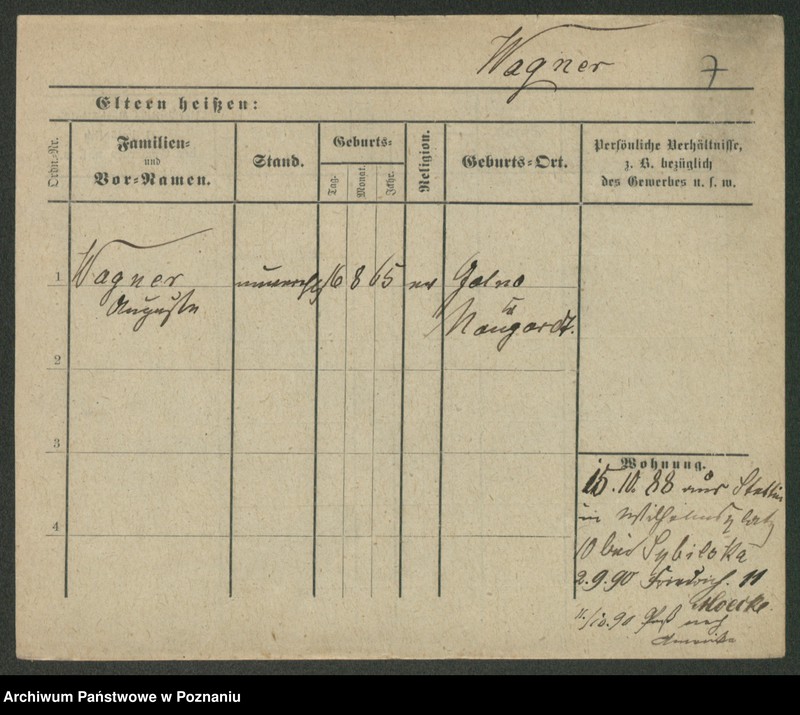 Wagner 7
Eltern heißen:
Ordn.-Nr.
Familien-
und
Vor-Namen.
Stand.
Geburts-
Tag.
Monat.
Jahr.
Religion.
Geburts-Ort.
Persönliche Verhältnisse,
z. B. bezüglich
des Gewerbes u. s. w.
1 Wagner 16 8 65 ev
Auguste
Naugardt.
2
3
4
Wohnung.
15.10.88 aus Stettin
in Wilhelmsplatz
10 bei
2.9.90 Friedrich. 11
11./10.90 nach
Amerika
Archiwum Państwowe w Poznaniu